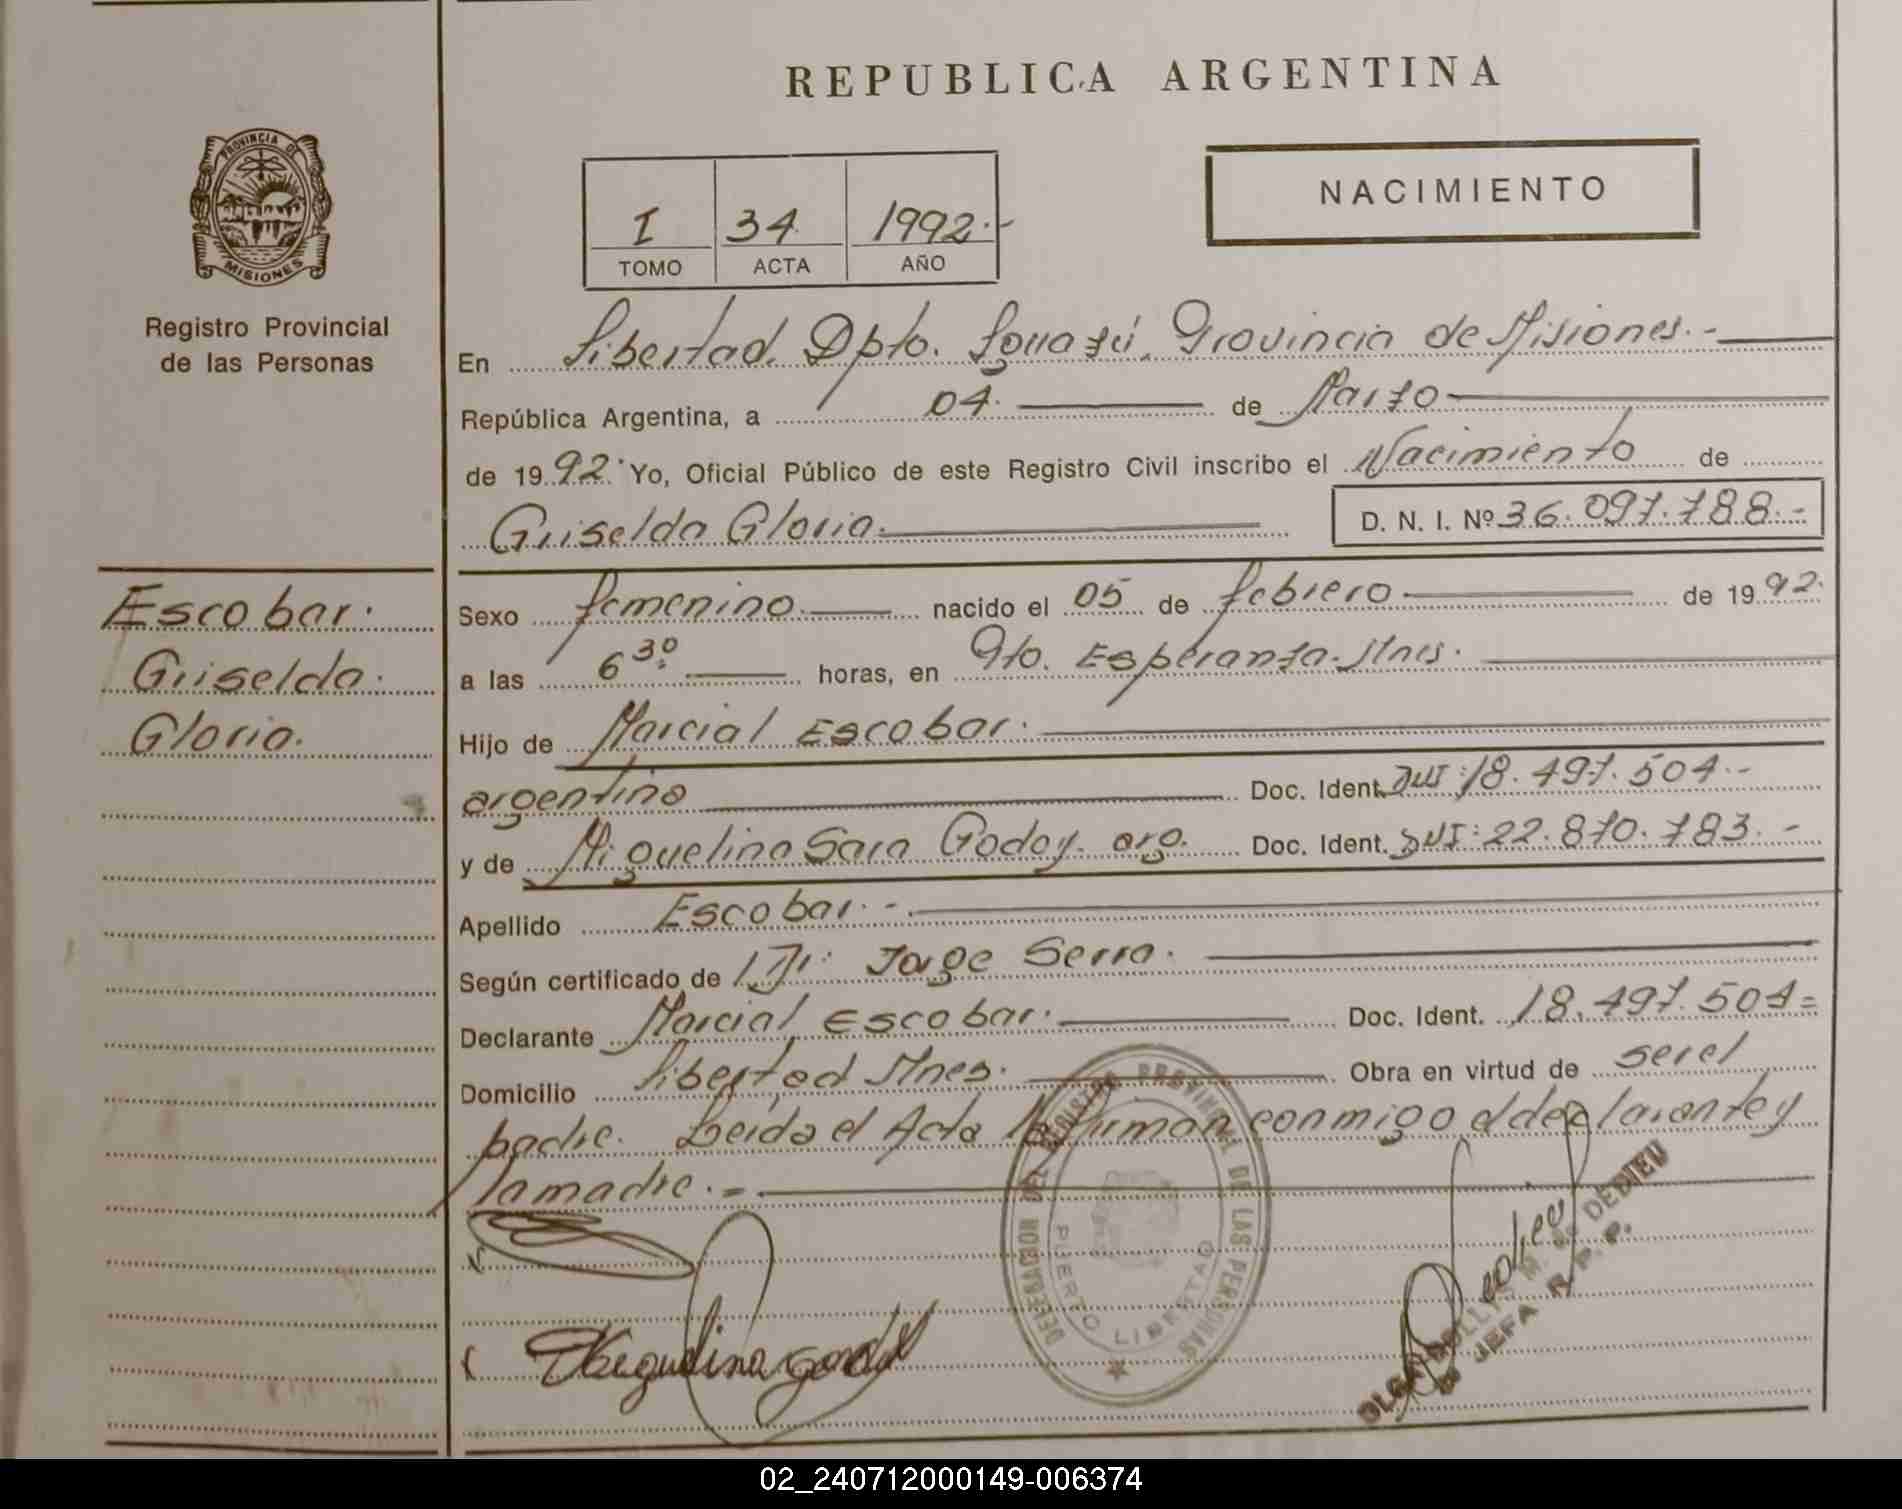 REPUBLICA ARGENTINA
PROVINCIA DE
MISIONES
Registro Provincial
de las Personas
NACIMIENTO
I 34 1992.-
TOMO ACTA AÑO
En Libertad. Dpto. Iguazú. Provincia de Misiones.-
República Argentina, a 04. de Marzo
de 1992. Yo, Oficial Público de este Registro Civil inscribo el Nacimiento de
Griselda Gloria. D. N. I. Nº 36.097.788.-
Escobar.
Griselda.
Gloria.
Sexo femenino. nacido el 05 de febrero de 1992.
a las 6 30 horas, en Pto. Esperanza. Mnes.
Hijo de Marcial Escobar.
argentino Doc. Ident. DNI: 18.497.504.-
y de Miguelina Sara Godoy. arg. Doc. Ident. DNI: 22.870.783.-
Apellido Escobar.-
Según certificado de Dr. Jorge Serra.
Declarante Marcial Escobar. Doc. Ident. 18.497.504=
Domicilio Libertad Mnes. Obra en virtud de ser el
padre. Leída el Acta la firman conmigo el declarante y
la madre.=
DEL REGISTRO PROVINCIAL DE LAS PERSONAS
PUERTO LIBERTAD
OLGA M. de DEDIEU
JEFA R. P. P.
02_240712000149-006374